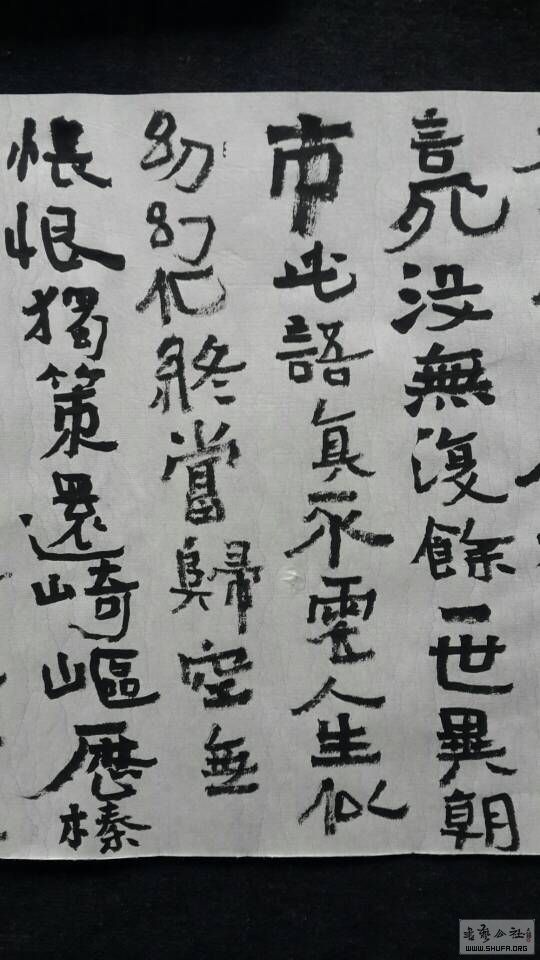 言死没無復餘一世異朝
市此語真不虛人生似
幻幻化終當歸空無
悵恨獨策還崎嶇歷榛
WWW.SHUFA.ORG